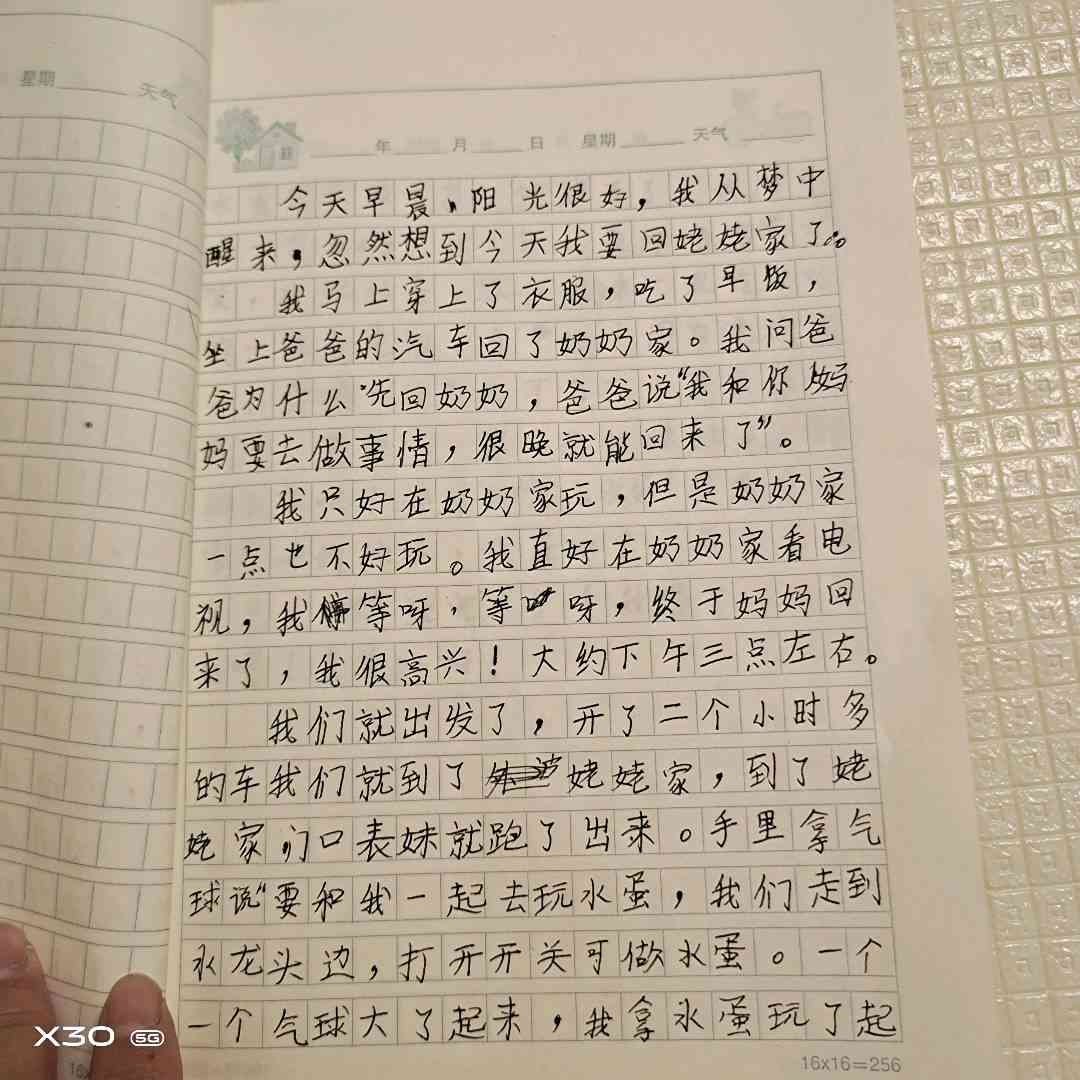 星期 天气
年 月 日 星期 天气
今天早晨，阳光很好，我从梦中
醒来，忽然想到今天我要回姥姥家了。
我马上穿上了衣服，吃了早饭，
坐上爸爸的汽车回了奶奶家。我问爸
爸为什么先回奶奶，爸爸说“我和你妈
妈要去做事情，很晚就能回来了”。
我只好在奶奶家玩，但是奶奶家
一点也不好玩。我直好在奶奶家看电
视，我等呀，等呀，终于妈妈回
来了，我很高兴！大约下午三点左右。
我们就出发了，开了二个小时多
的车我们就到了姥姥家，到了姥
姥家门口表妹就跑了出来。手里拿气
球说“要和我一起去玩水蛋，我们走到
水龙头边，打开开关可做水蛋。一个
一个气球大了起来，我拿水蛋玩了起
16x16=256
X30 5G